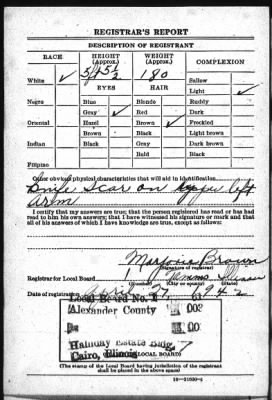 REGISTRAR'S REPORT
DESCRIPTION OF REGISTRANT
RACE HEIGHT (Approx.) WEIGHT (Approx.) COMPLEXION
5 ft 5 1/2 180
White ✓ EYES HAIR Sallow
Light ✓
Negro Blue Blonde Ruddy
Gray ✓ Red Dark
Oriental Hazel Brown ✓ Freckled
Brown Black Light brown
Indian Black Gray Dark brown
Bald Black
Filipino
Other obvious physical characteristics that will aid in identification
Knife Scar on upper left
arm
I certify that my answers are true; that the person registered has read or has had
read to him his own answers; that I have witnessed his signature or mark and that
all of his answers of which I have knowledge are true, except as follows:
Marjorie Brown
(Signature of registrar)
Registrar for Local Board 1 Illinois
(Number) (City or county) (State)
Date of registration April 27 1942
Local Board No. 1
Alexander County 002
003
Halliday Estate Bldg.
Cairo, Illinois
LOCAL BOARD)
(The stamp of the Local Board having jurisdiction of the registrant
shall be placed in the above space)